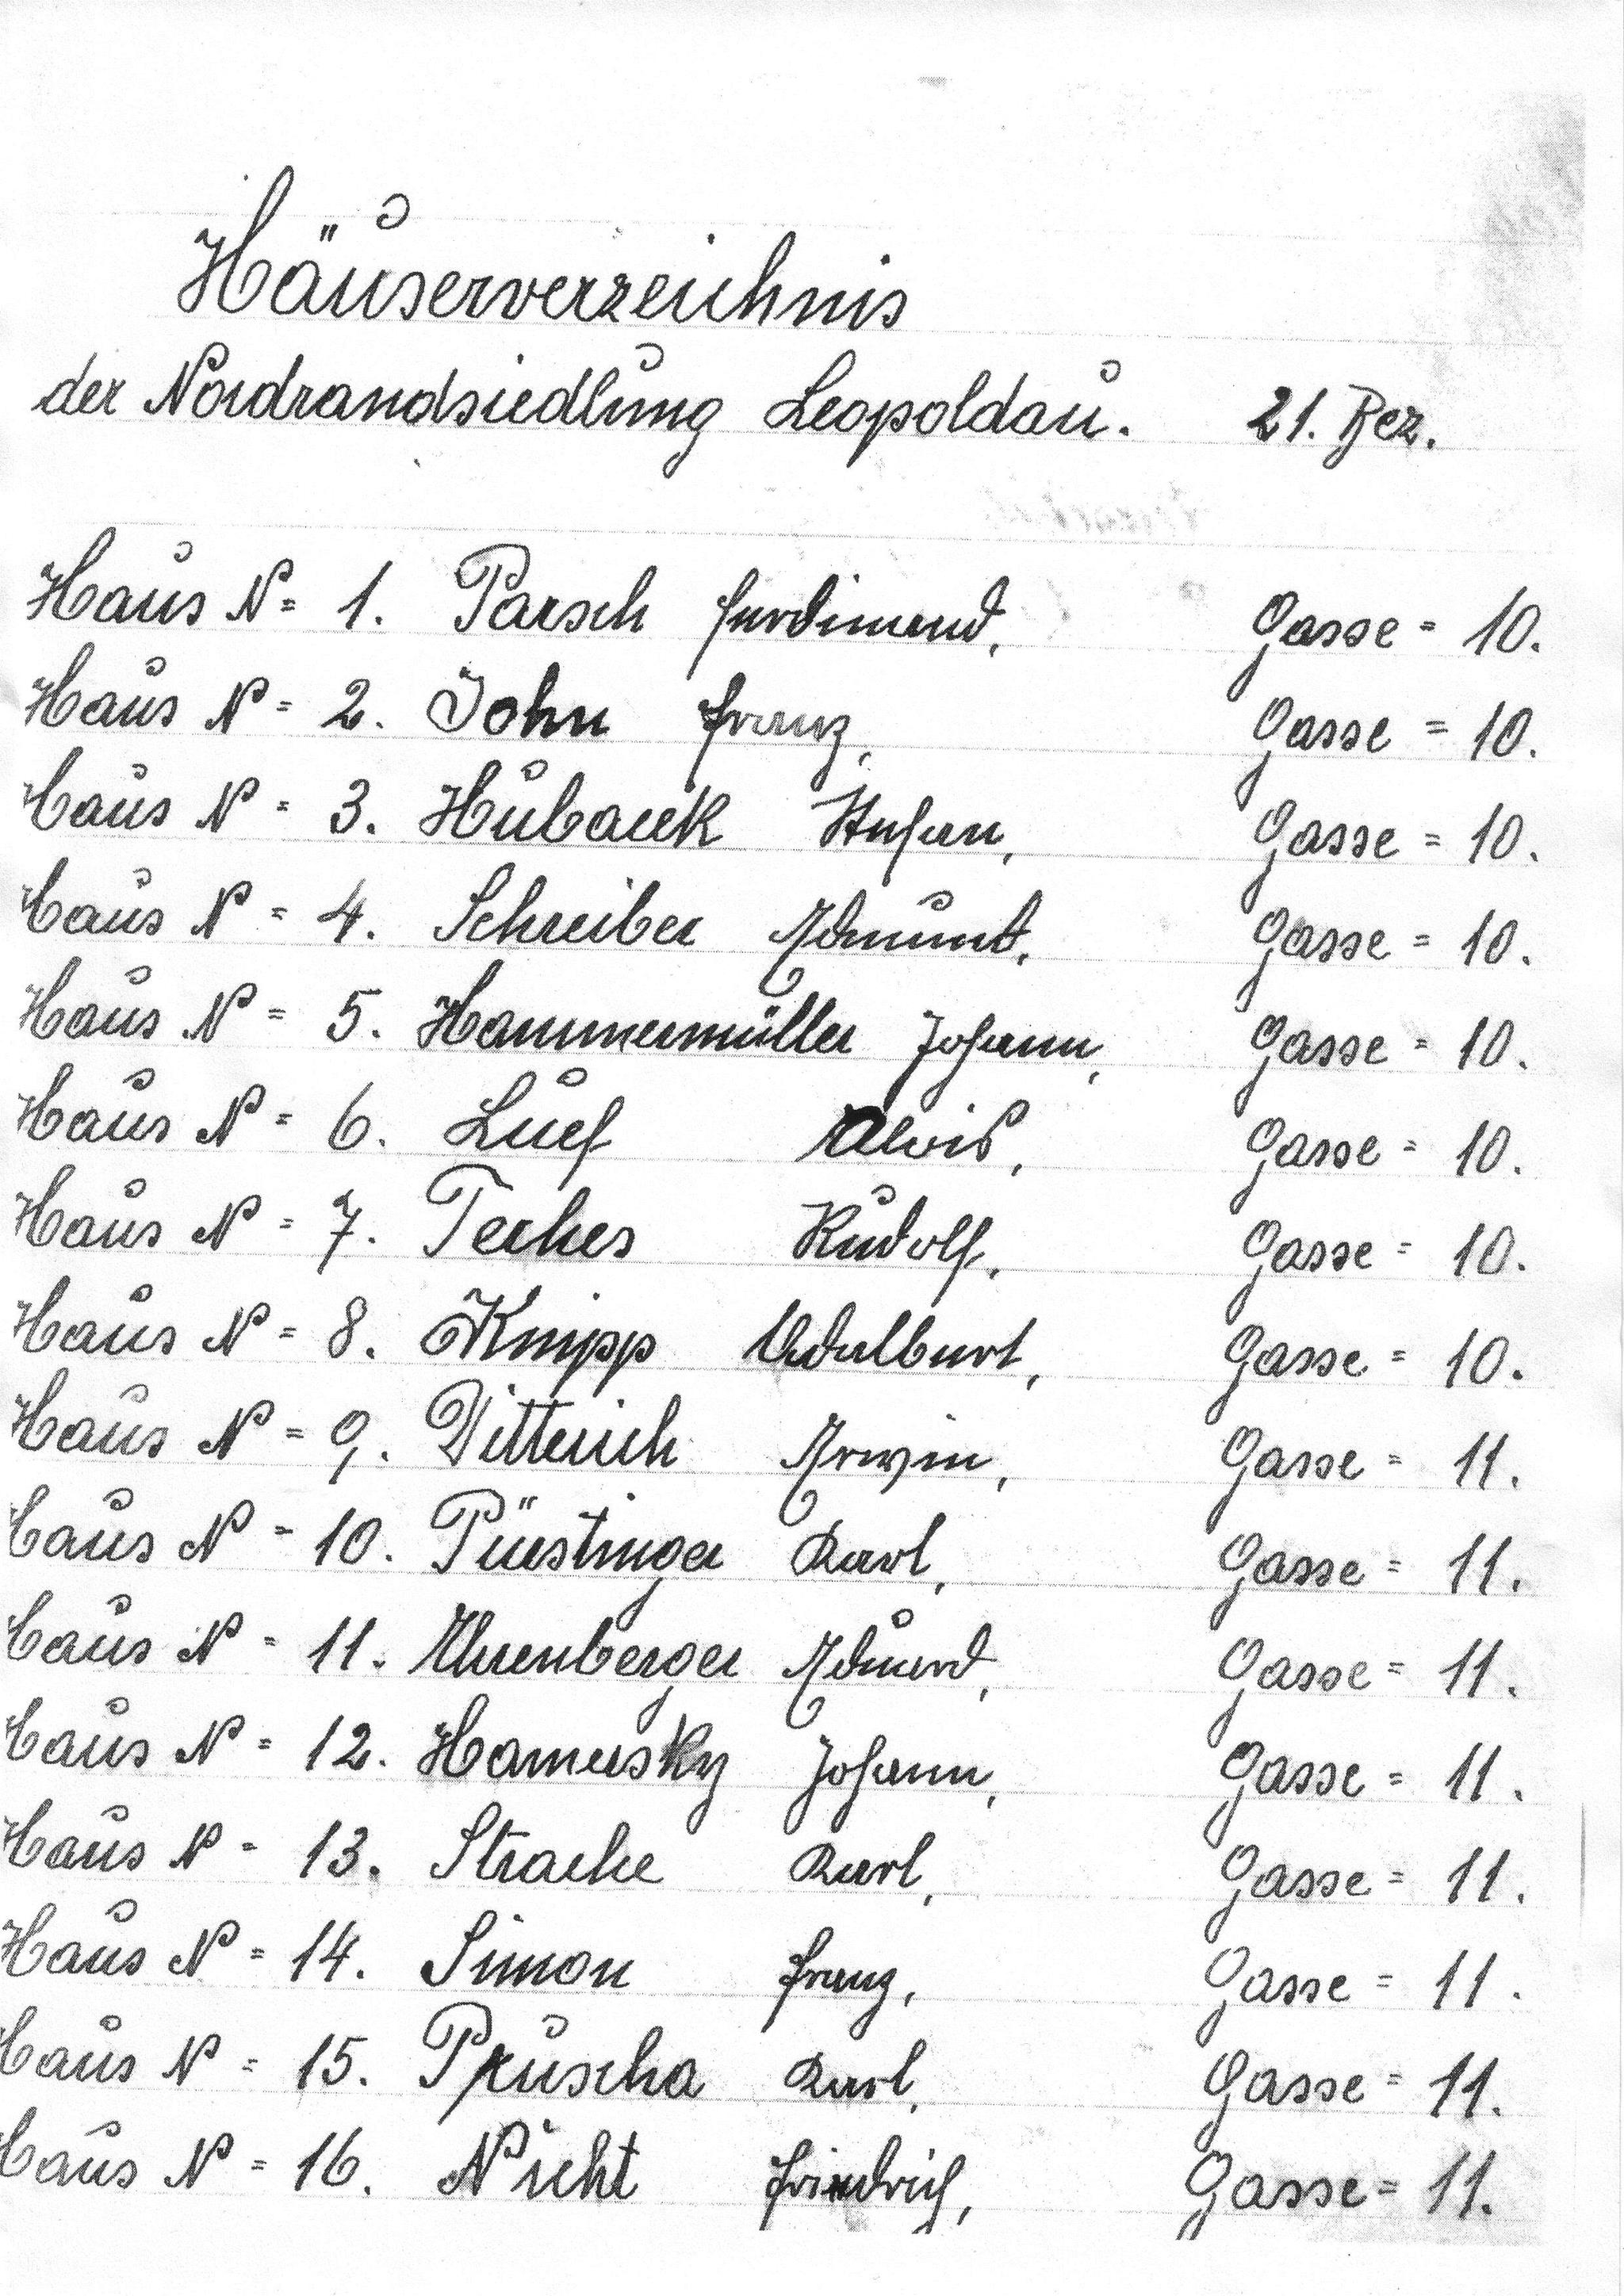 Häuserverzeichnis
der Nordrandsiedlung Leopoldau. 21. Bez.
Haus N= 1. Parsch Ferdinand, Gasse = 10.
Haus N = 2. John Franz, Gasse = 10.
Haus N = 3. Hubacek Stefan, Gasse = 10.
Haus N = 4. Schreiber Edmund, Gasse = 10.
Haus N = 5. Hammermüller Johann, Gasse = 10.
Haus N = 6. Luef Alois, Gasse = 10.
Haus N = 7. Terkes Rudolf, Gasse = 10.
Haus N = 8. Knipp Adalbert, Gasse = 10.
Haus N = 9. Ditterich Erwin, Gasse = 11.
Haus N = 10. Pürstinger Karl, Gasse = 11.
Haus N = 11. Ehrenberger Eduard, Gasse = 11.
Haus N = 12. Hamersky Johann, Gasse = 11.
Haus N = 13. Strache Karl, Gasse = 11.
Haus N = 14. Simon Franz, Gasse = 11.
Haus N = 15. Pruscha Karl, Gasse = 11.
Haus N = 16. Nicht Friedrich, Gasse = 11.